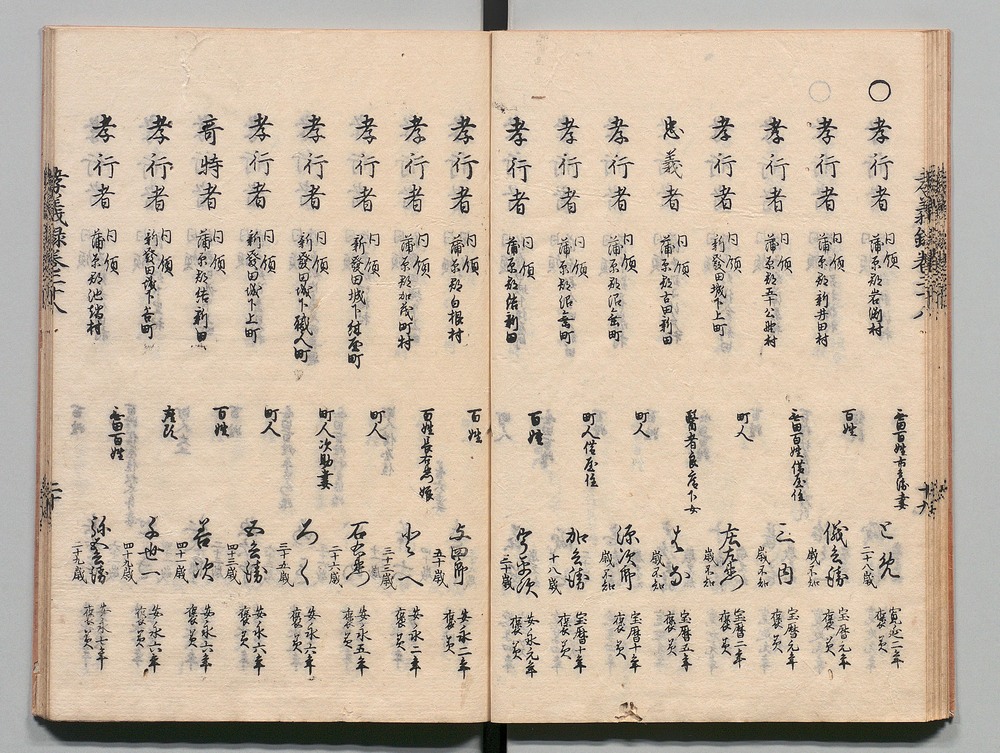 孝行者 同領 蒲原郡岩渕村 無田百姓市之丞妻 とめ 二十八歳 寛延二年 褒美
孝行者 同領 蒲原郡新井田村 百姓 儀兵衛 歳不知 宝暦元年 褒美
孝行者 同領 蒲原郡五十公野村 無田百姓借屋住 三内 歳不知 宝暦元年 褒美
孝行者 同領 新發田城下上町 町人 庄左衛門 歳不知 宝暦二年 褒美
忠義者 同領 蒲原郡古田新田 醫者良庵下女 歳不知 宝暦五年 褒美
孝行者 同領 蒲原郡沼垂町 町人 源次郎 歳不知 宝暦十年 褒美
孝行者 同領 蒲原郡沼垂町 町人借屋住 加兵衛 十八歳 宝暦十年 褒美
孝行者 同領 蒲原郡結新田 百姓 三十歳 安永元年 褒美
孝行者 同領 蒲原郡白根村 百姓 与四郎 五十歳 安永二年 褒美
孝行者 同領 蒲原郡加茂町村 百姓長右衛門娘 三十三歳 安永二年 褒美
孝行者 同領 新發田城下紺屋町 町人 石右衛門 二十六歳 安永五年 褒美
孝行者 同領 新發田城下職人町 町人次助妻 ろく 三十五歳 安永六年 褒美
孝行者 同領 新發田城下上町 町人 四十三歳 安永六年 褒美
奇特者 同領 蒲原郡結新田 百姓 善次 四十歳 安永六年 褒美
孝行者 同領 新發田城下古町 座頭 千世一 四十九歳 安永六年 褒美
孝行者 同領 蒲原郡池端村 無田百姓 弥五兵衛 二十九歳 安永七年 褒美
孝義録卷二十八